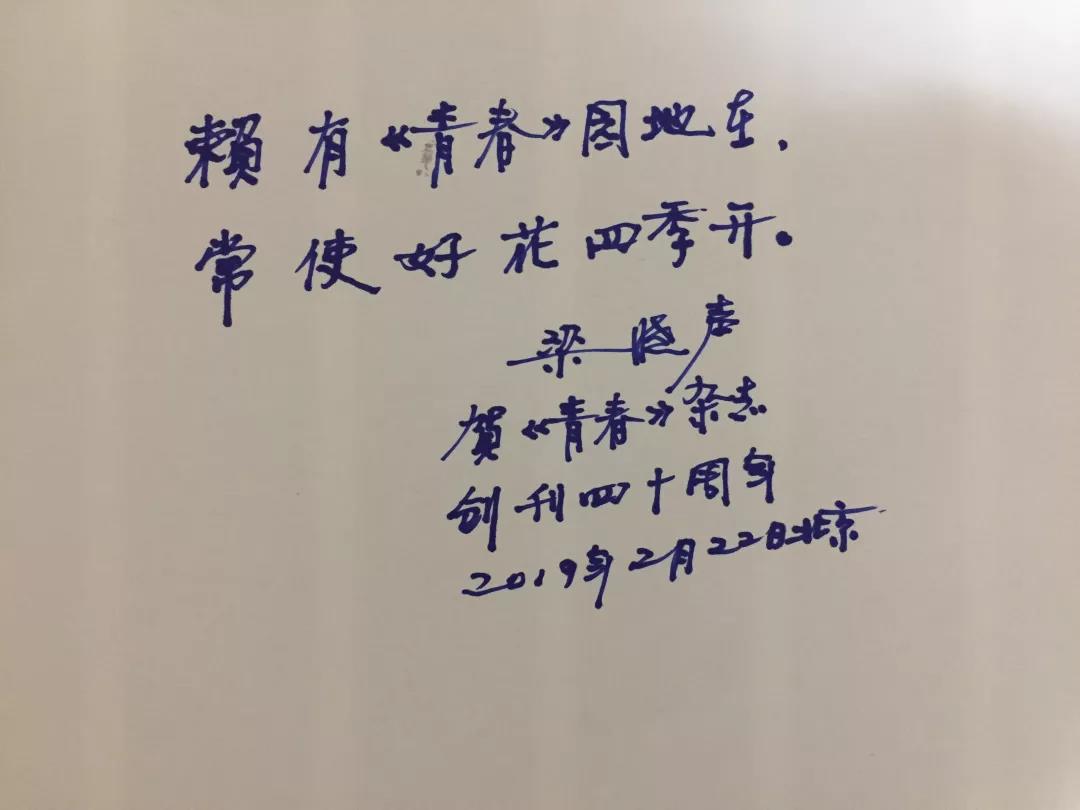 賴有《青春》园地在，
常使好花四季开。
梁晓声
賀《青春》杂志
创刊四十周年
2019年2月22日北京